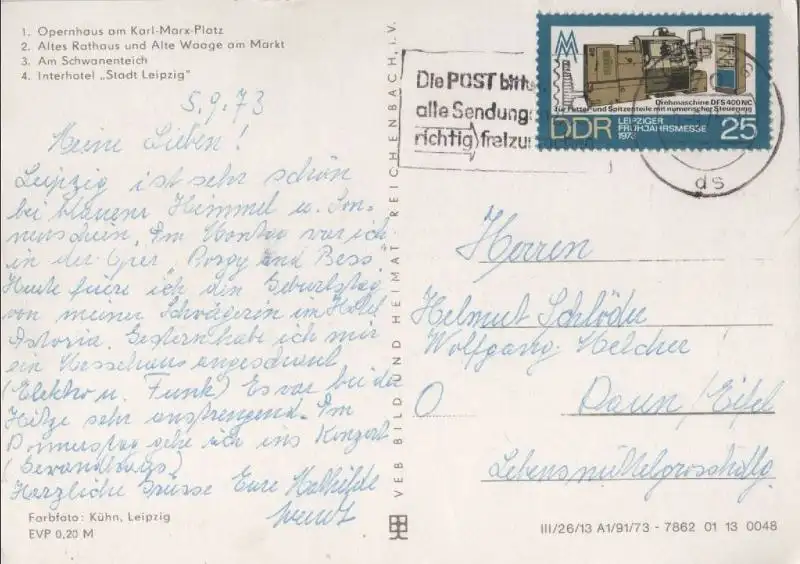 1. Opernhaus am Karl-Marx-Platz
2. Altes Rathaus und Alte Waage am Markt
3. Am Schwanenteich
4. Interhotel „Stadt Leipzig"
5.9.73
Meine Lieben!
Leipzig ist sehr schön
bei blauem Himmel u. Son-
nenschein. Am Montag war ich
in der Oper „Porgy and Bess"
Heute feire ich den Geburtstag
von meiner Schwägerin im Hotel
Astoria. Gestern habe ich mir
ein Messehaus angeschaut
(Elektro u. Funk) Es war bei der
Hitze sehr anstrengend. Am
Donnerstag gehe ich ins Konzert
(Gewandhaus)
Herzliche Grüsse Eure Mathilde
Farbfoto: Kühn, Leipzig
EVP 0,20 M
VEB BILD UND HEIMAT REICHENBACH i. V.
Die POST bittet
alle Sendung
richtig freizu
Drehmaschine DFS 400 NC
für Futter- und Spitzenteile mit numerischer Steuerung
DDR LEIPZIGER
FRÜHJAHRSMESSE
1973 25
ds
Herren
Helmut Schlöder
Wolfgang Melcher
O Daun/Eifel
Lebensmittelgroßhdlg.
III/26/13 A1/91/73 - 7862 01 13 0048